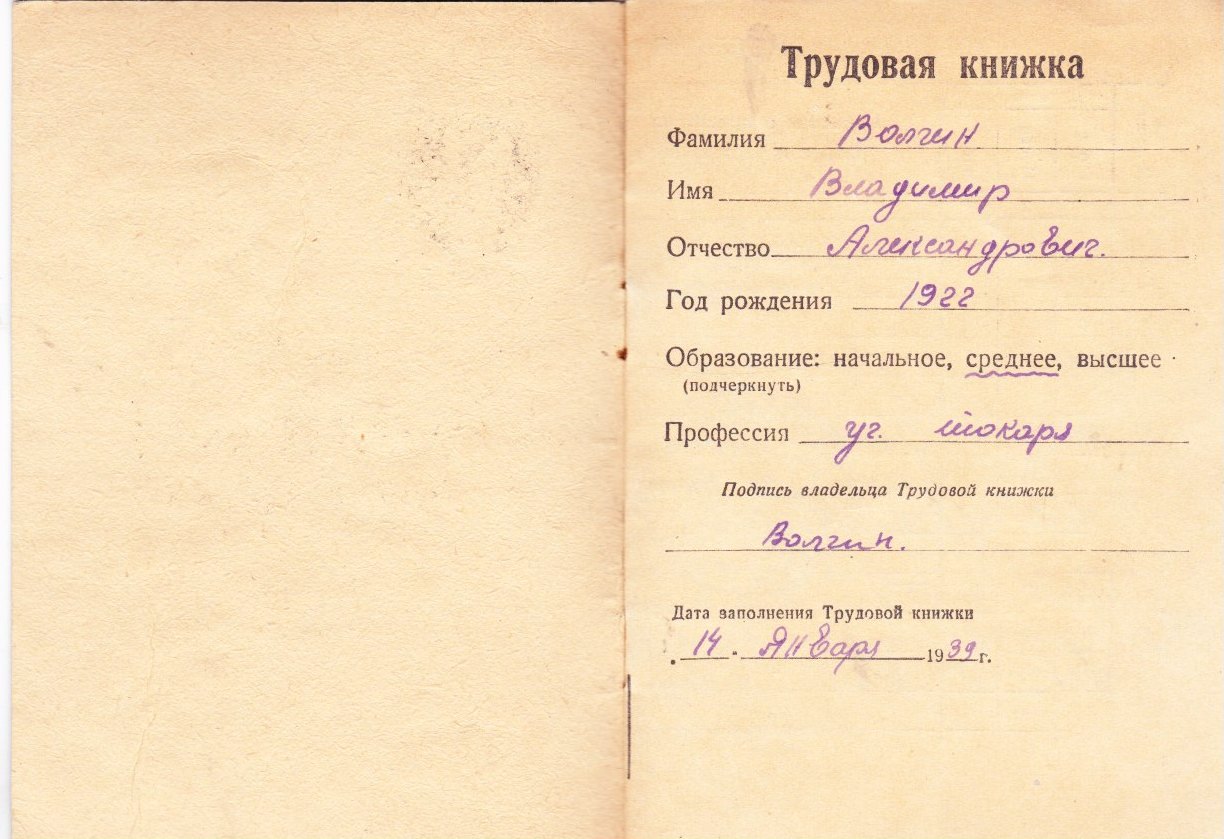 Трудовая книжка
Фамилия Волгин
Имя Владимир
Отчество Александрович.
Год рождения 1922
Образование: начальное, среднее, высшее
(подчеркнуть)
Профессия уч. токаря
Подпись владельца Трудовой книжки
Волгин.
Дата заполнения Трудовой книжки
14 Января 1939 г.